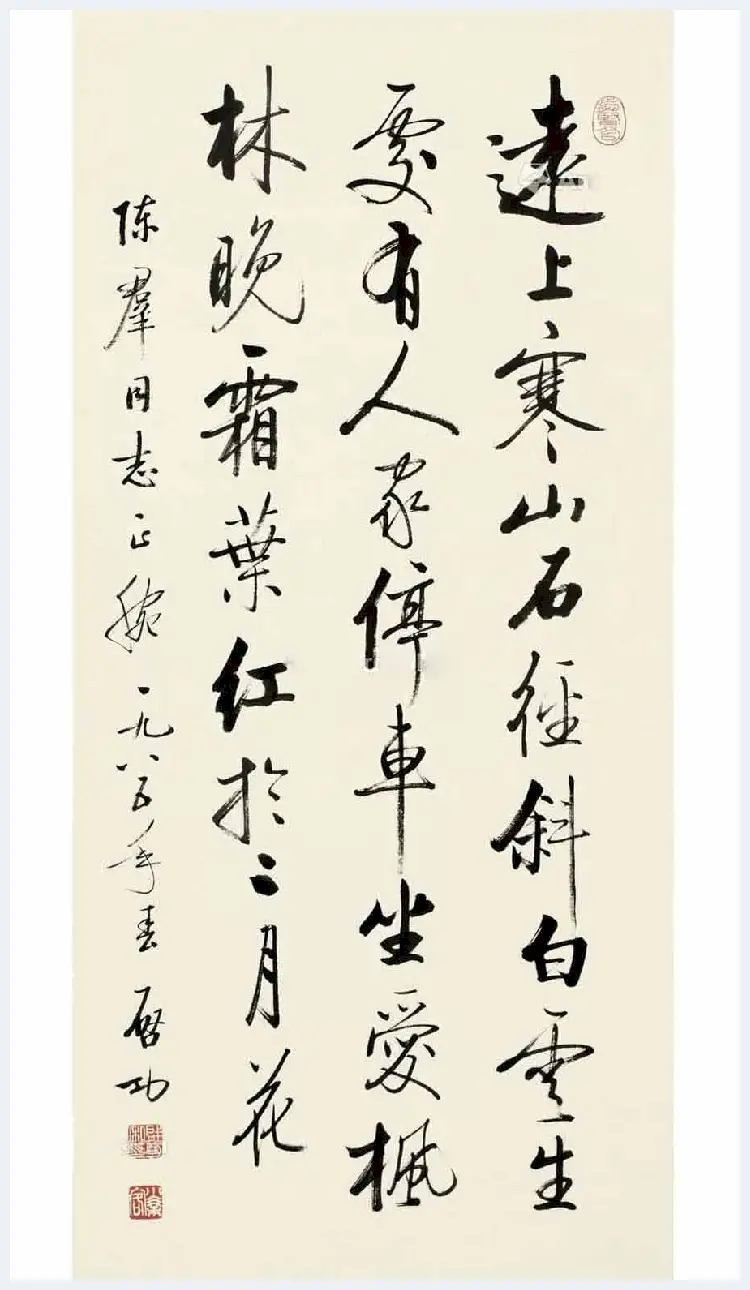 遠上寒山石徑斜白雲生
處有人家停車坐愛楓
林晚霜葉紅於二月花
陈羣同志正腕一九八五年春 啓功